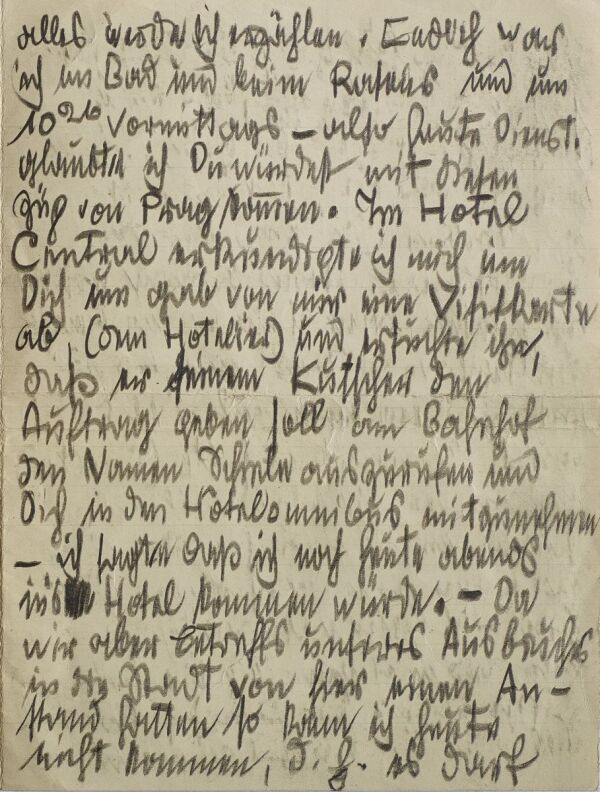 alles werde ich erzählen. Endlich war
ich im Bad und beim Raseur und um
10²⁶ Vormittags – also heute Dienst.
glaubte ich Du würdest mit diesen
Zug von Prag kom̅en. Im Hotel
Central erkundigte ich mich um
Dich und gab von mir eine Visitkarte
ab, (dem Hotelier) und ersuchte ihn,
daß er seinem Kutscher den
Auftrag geben soll am Bahnhof
den Namen Schiele auszurufen und
Dich in den Hotelomnibus mitzunehmen
– ich sagte daß ich noch heute abends
ins Hotel kommen würde. – Da
wir aber betreffs unseres Ausbruches
in die Stadt von hier einen An-
stand hatten so kann ich heute
nicht kommen, d. h. es darf